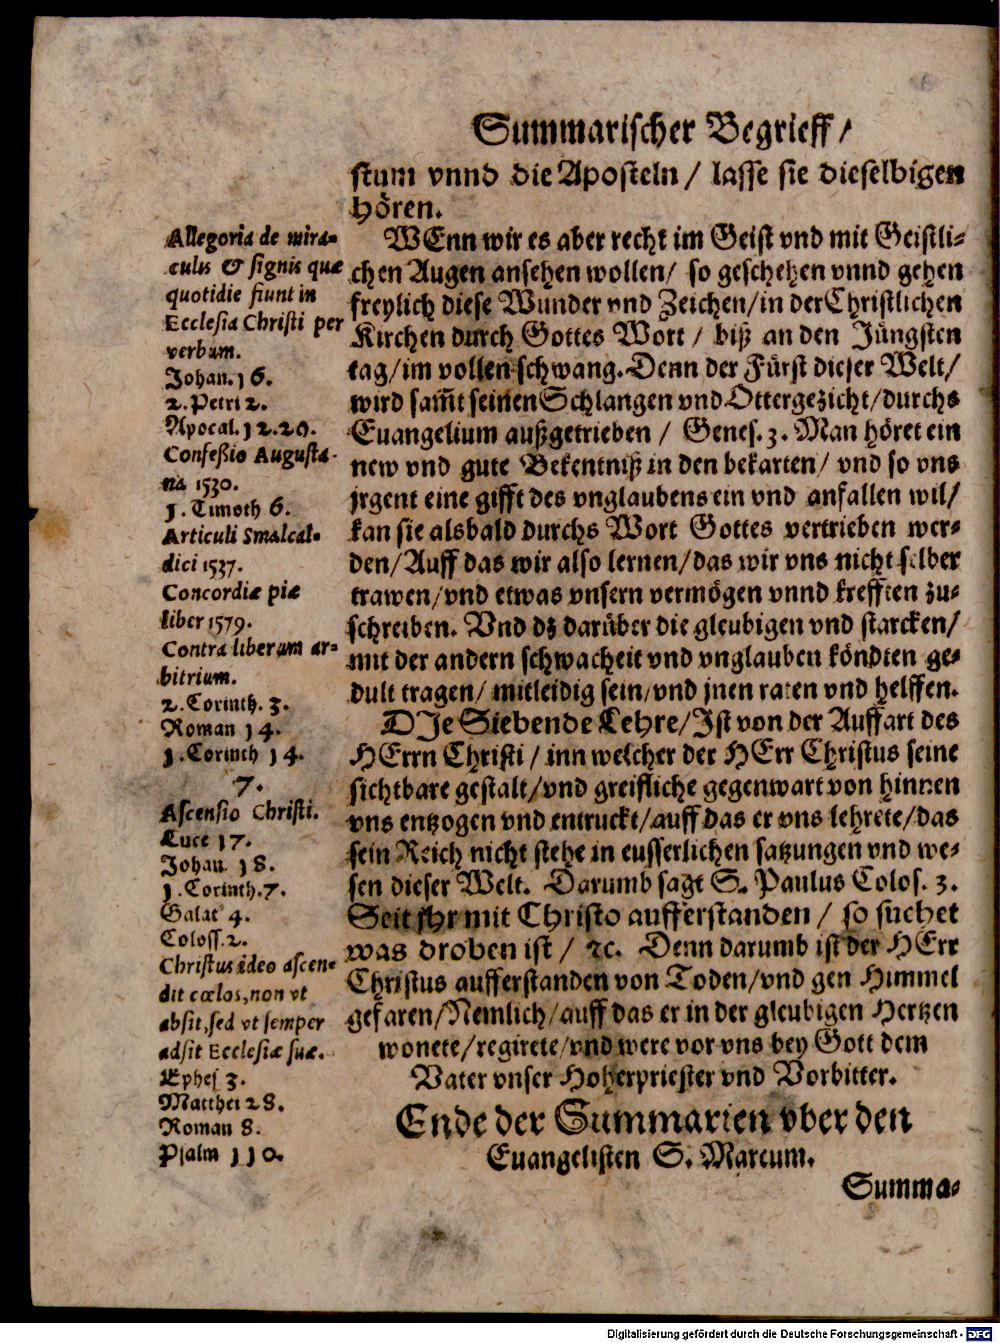 Summarischer Begrieff/
stum vnnd die Aposteln / lasse sie dieselbigen
hören.
WEnn wir es aber recht im Geist vnd mit Geistli-
chen Augen ansehen wollen/ so geschehen vnnd gehen
freylich diese Wunder vnd Zeichen/in der Christlichen
Kirchen durch Gottes Wort / biß an den Jüngsten
tag/im vollen schwang. Denn der Fürst dieser Welt/
wird sam̃t seinen Schlangen vnd Ottergezicht/durchs
Euangelium außgetrieben / Genes. 3. Man höret ein
new vnd gute Bekentniß in den bekarten/ vnd so vns
jrgent eine gifft des vnglaubens ein vnd anfallen wil/
kan sie alsbald durchs Wort Gottes vertrieben wer-
den/Auff das wir also lernen/das wir vns nicht selber
trawen/vnd etwas vnsern vermögen vnnd krefften zu-
schreiben. Vnd dz darüber die gleubigen vnd starcken/
mit der andern schwacheit vnd vnglauben köndten ge-
dult tragen/ mitleidig sein/vnd jnen raten vnd helffen.
DJe Siebende Lehre/Jst von der Auffart des
HErrn Christi / inn welcher der HErr Christus seine
sichtbare gestalt/vnd greifliche gegenwart von hinnen
vns entzogen vnd entruckt/auff das er vns lehrete/das
sein Reich nicht stehe in eusserlichen satzungen vnd we-
sen dieser Welt. Darumb sagt S. Paulus Colos. 3.
Seit jhr mit Christo aufferstanden / so suchet
was droben ist / ꝛc. Denn darumb ist der HErr
Christus aufferstanden von Toden/vnd gen Himmel
gefaren/Nemlich/auff das er in der gleubigen Hertzen
wonete/regirete/vnd were vor vns bey Gott dem
Vater vnser Hoherpriester vnd Vorbitter.
Ende der Summarien vber den
Euangelisten S. Marcum.
Summa-
Allegoria de mira-
culis & signis quæ
quotidie fiunt in
Ecclesia Christi per
verbum.
Johan. 16.
2. Petri 2.
Apocal. 12. 20.
Confeßio Augusta-
na 1530.
1. Timoth 6.
Articuli Smalcal-
dici 1537.
Concordiæ piæ
liber 1579.
Contra liberum ar-
bitrium.
2. Corinth. 3.
Roman 14.
1. Corinth 14.
7.
Ascensio Christi.
Luce 17.
Johan. 18.
1. Corinth. 7.
Galat 4.
Coloss. 2.
Christus ideo ascen-
dit cœlos, non vt
absit, sed vt semper
adsit Ecclesiæ suæ.
Ephes 3.
Matthei 28.
Roman 8.
Psalm 110.
Digitalisierung gefördert durch die Deutsche Forschungsgemeinschaft - DFG